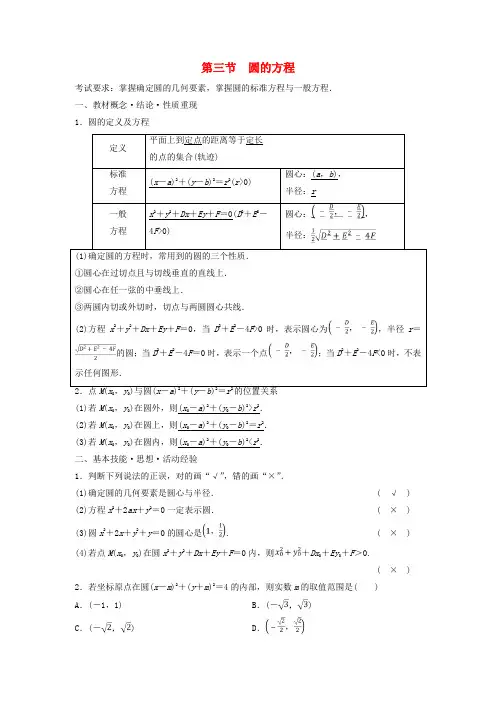 第三节　圆的方程
考试要求：掌握确定圆的几何要素，掌握圆的标准方程与一般方程．
一、教材概念·结论·性质重现
1．圆的定义及方程
定义
平面上到定点的距离等于定长
的点的集合(轨迹)
标准
方程
(x－a)²＋(y－b)²＝r²(r>0)
圆心：(a，b)，
半径：r
一般
方程
x²＋y²＋Dx＋Ey＋F＝0(D²＋E²－
4F>0)
圆心：(－D/2，－E/2)，
半径：1/2√(D²＋E²－4F)
(1)确定圆的方程时，常用到的圆的三个性质．
①圆心在过切点且与切线垂直的直线上．
②圆心在任一弦的中垂线上．
③两圆内切或外切时，切点与两圆圆心共线．
(2)方程x²＋y²＋Dx＋Ey＋F＝0，当D²＋E²－4F>0时，表示圆心为(－D/2，－E/2)，半径r＝
√(D²＋E²－4F)/2的圆；当D²＋E²－4F＝0时，表示一个点(－D/2，－E/2)；当D²＋E²－4F<0时，不表
示任何图形．
2．点M(x₀，y₀)与圆(x－a)²＋(y－b)²＝r²的位置关系
(1)若M(x₀，y₀)在圆外，则(x₀－a)²＋(y₀－b)²>r²．
(2)若M(x₀，y₀)在圆上，则(x₀－a)²＋(y₀－b)²＝r²．
(3)若M(x₀，y₀)在圆内，则(x₀－a)²＋(y₀－b)²<r²．
二、基本技能·思想·活动经验
1．判断下列说法的正误，对的画“√”，错的画“×”．
(1)确定圆的几何要素是圆心与半径．　( √ )
(2)方程x²＋2ax＋y²＝0一定表示圆．　( × )
(3)圆x²＋2x＋y²＋y＝0的圆心是(1，1/2)．　( × )
(4)若点M(x₀，y₀)在圆x²＋y²＋Dx＋Ey＋F＝0内，则x₀²＋y₀²＋Dx₀＋Ey₀＋F>0.
( × )
2．若坐标原点在圆(x－m)²＋(y＋m)²＝4的内部，则实数m的取值范围是(　)
A．(－1，1)　B．(－√3，√3)
C．(－√2，√2)　D．(－√2/2，√2/2)